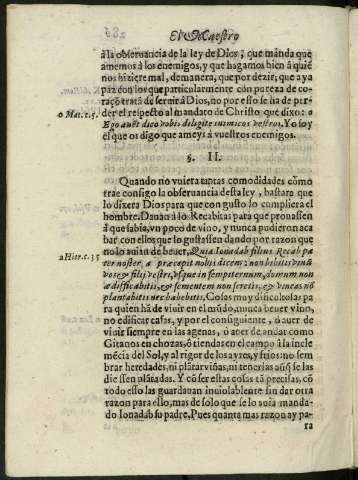 El Maestro
à la obseruancia de la ley de Dios; que manda que
amemos à los enemigos, y que hagamos bien à quiē
nos hiziere mal, demanera, que por dezir; que aya
paz con los que particularmente con pureza de co-
raçō tratā de seruir à Dios, no por esso se ha de per-
der el respeto al mandato de Christo que dixo:
o Mat. c.5.
Ego autē dico vobis diligite inimicos vestros. Yo soy
el que os digo que ameys à vuestros enemigos.
§. II.
Quando no vuiera tantas comodidades cōmo
trae consigo la obseruancia desta ley, bastara que
lo dixera Dios para que con gusto lo cumpliera el
hombre. Dauan à los Recabitas para que prouassen
à que sabia, vn poco de vino, y nunca pudieron aca
bar con ellos que lo gustassen dando por razon que
no lo auian de beuer, Quia Ionadab filius Recab pa
a Hier. c. 35
ter noster, præcepit nobis dicens: non bibitis vinū
vos & filij vestri, vsque in sempiternum, domum non
ædificabitis, & sementem non seretis, & vineas nō
plantabitis nec habebitis. Cosas muy dificultosas pa
ra quien ha de viuir en el mūdo, nunca beuer vino,
no edificar casas, y por el consiguiente, ò auer de
viuir siempre en las agenas, ò auer de andar como
Gitanos en chozas, ò tiendas en el campo à la incle
mēcia del Sol, y al rigor de los ayres, y frios: no sem
brar heredades, ni plātar viñas, ni tenerlas aūq̄ se las
diessen plātadas. Y cō ser estas cosas tā precisas, cō
todo esso las guardauan inuiolablente sin dar otra
razon para ello, mas de solo que se lo auia manda-
do Ionadab su padre, Pues quanta mas razon ay pa-
ra